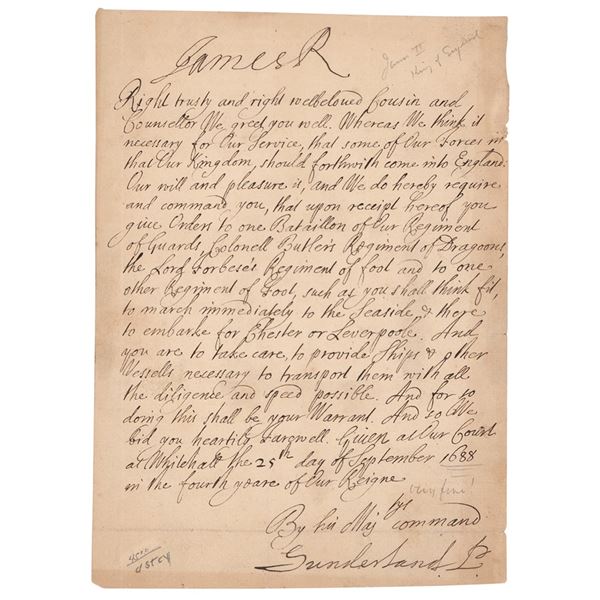 James R
James II
King of England
Right trusty and right welbeloved Cousin and
Counsellor We greet you well. Whereas We think it
necessary for Our Service, that some of Our Forces in
that Our Kingdom, should forthwith come into England:
Our will and pleasure is, and We do hereby require
and command you, that upon receipt hereof you
give Orders to one Bataillon of Our Regiment
of Guards, Colonell Butler's Regiment of Dragoons,
the Lord Forbese's Regiment of foot and to one
other Regiment of Foot, such as you shall think fit,
to march immediately to the Seaside, & there
to embarke for Chester or Leverpoole. And
you are to take care, to provide Ships & other
Vessells necessary to transport them with all
the diligence and speed possible. And for so
doing this shall be your Warrant. And so We
bid you heartily farewell. Given at Our Court
at Whitehall the 25th day of September 1688
in the fourth yeare of Our Reigne
very fine!
By his Majtys command
Sunderland P